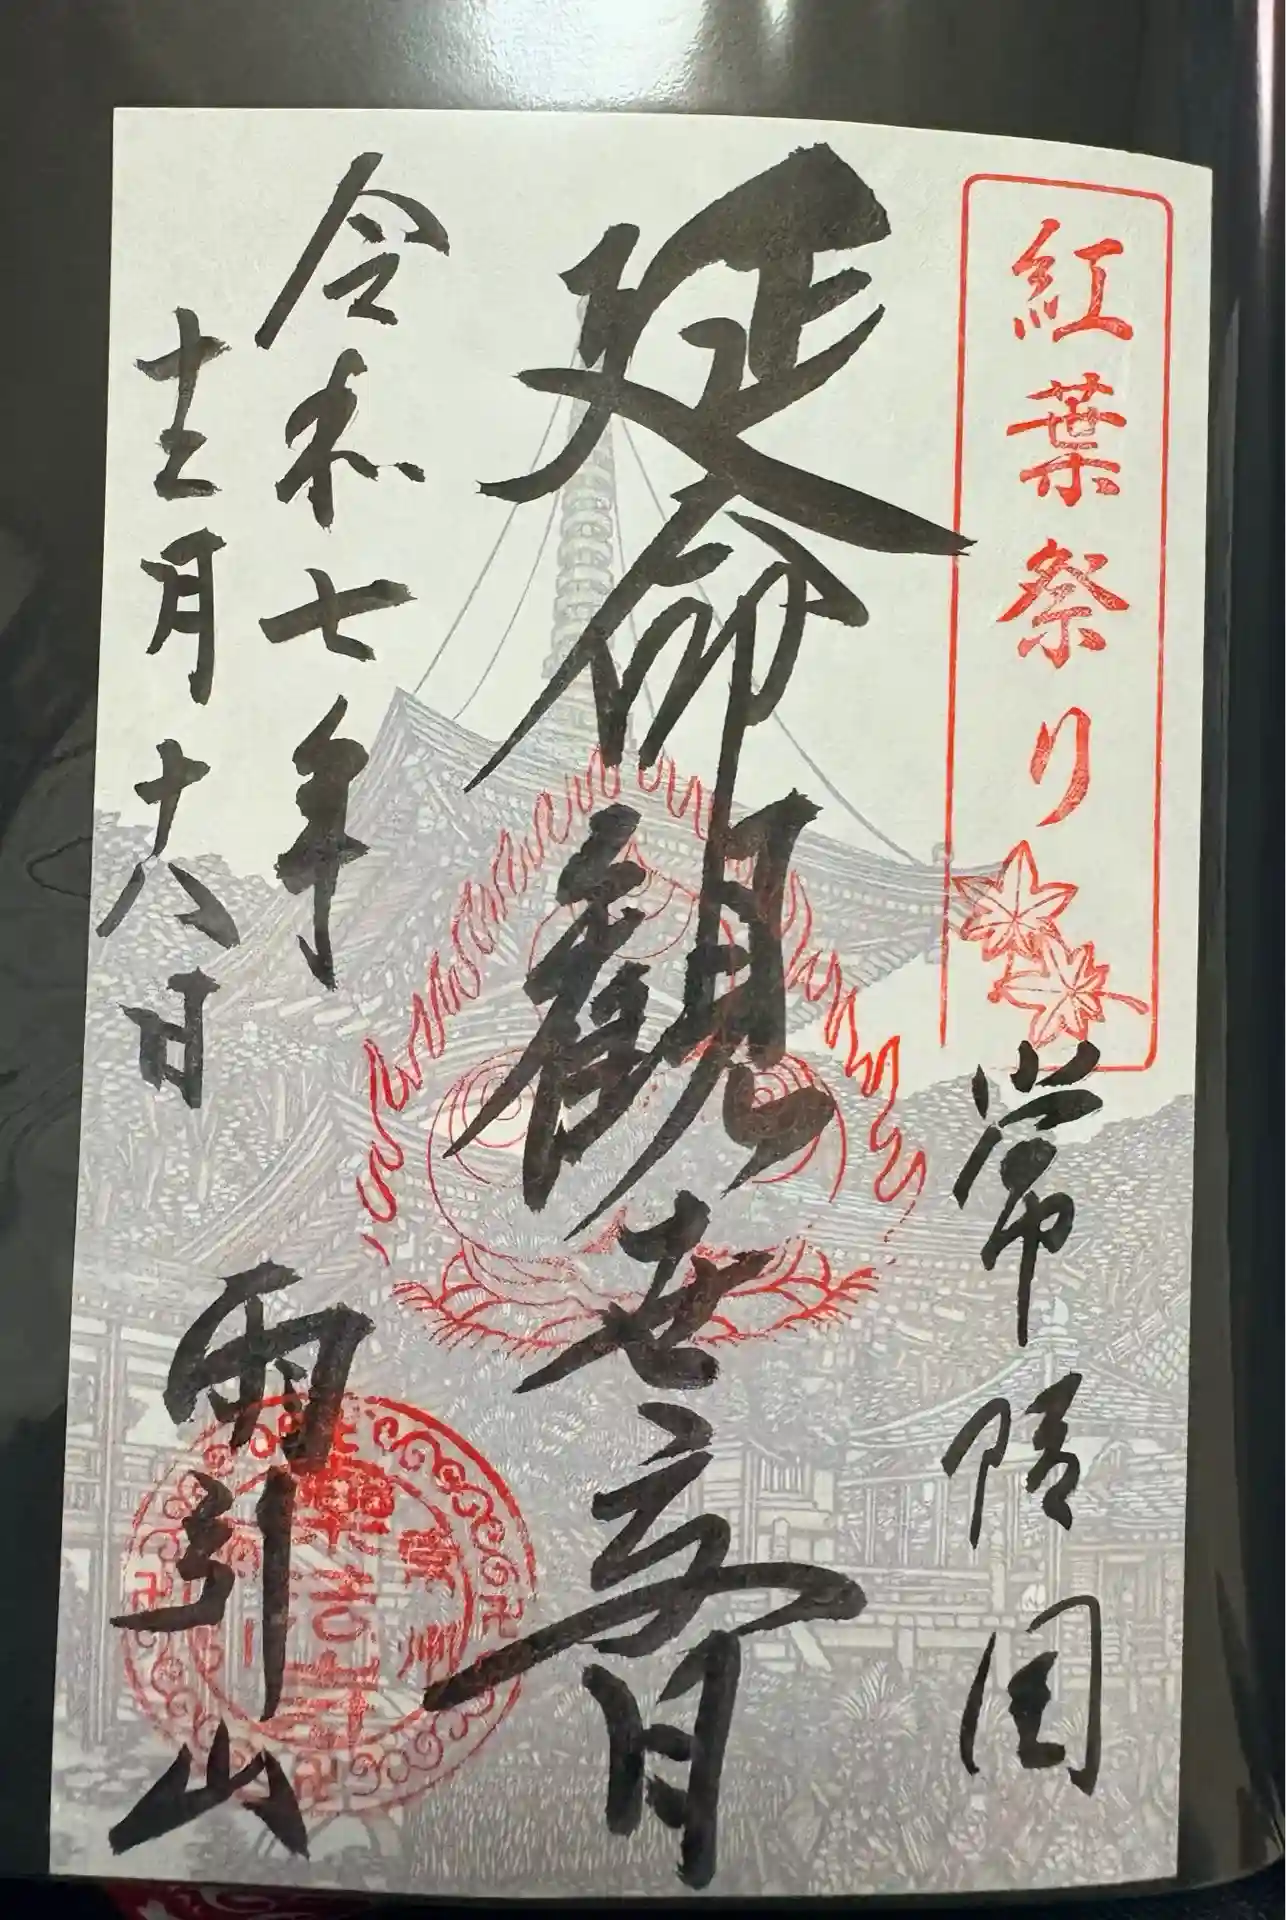 紅葉祭り
常陸国
延命観世音
令和七年
十二月十八日
雨引山
常州